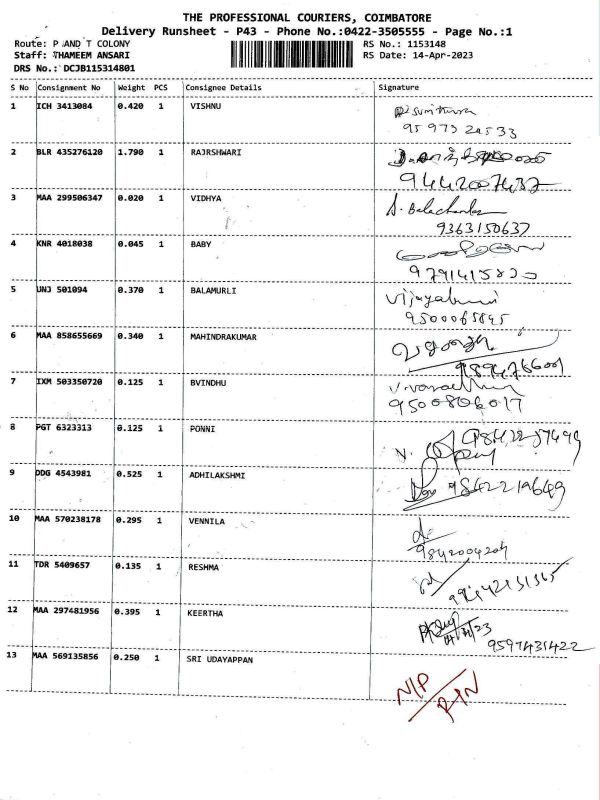 THE PROFESSIONAL COURIERS, COIMBATORE
Delivery Runsheet - P43 - Phone No.:0422-3505555 - Page No.:1
Route: P AND T COLONY RS No.: 1153148
Staff: THAMEEM ANSARI RS Date: 14-Apr-2023
DRS No.: DCJB115314801
S No Consignment No Weight PCS Consignee Details Signature
1 ICH 3413084 0.420 1 VISHNU
2 BLR 435276120 1.790 1 RAJRSHWARI
9442007437
3 MAA 299506347 0.020 1 VIDHYA
9363150637
4 KNR 4018038 0.045 1 BABY
5 UNJ 501094 0.370 1 BALAMURLI
9500065845
6 MAA 858655669 0.340 1 MAHINDRAKUMAR
7 IXM 503350720 0.125 1 BVINDHU
9500806017
8 PGT 6323313 0.125 1 PONNI
9 DDG 4543981 0.525 1 ADHILAKSHMI
9842219649
10 MAA 570238178 0.295 1 VENNILA
9842004204
11 TDR 5409657 0.135 1 RESHMA
12 MAA 297481956 0.395 1 KEERTHA
9597431422
13 MAA 569135856 0.250 1 SRI UDAYAPPAN
N/P
RTN